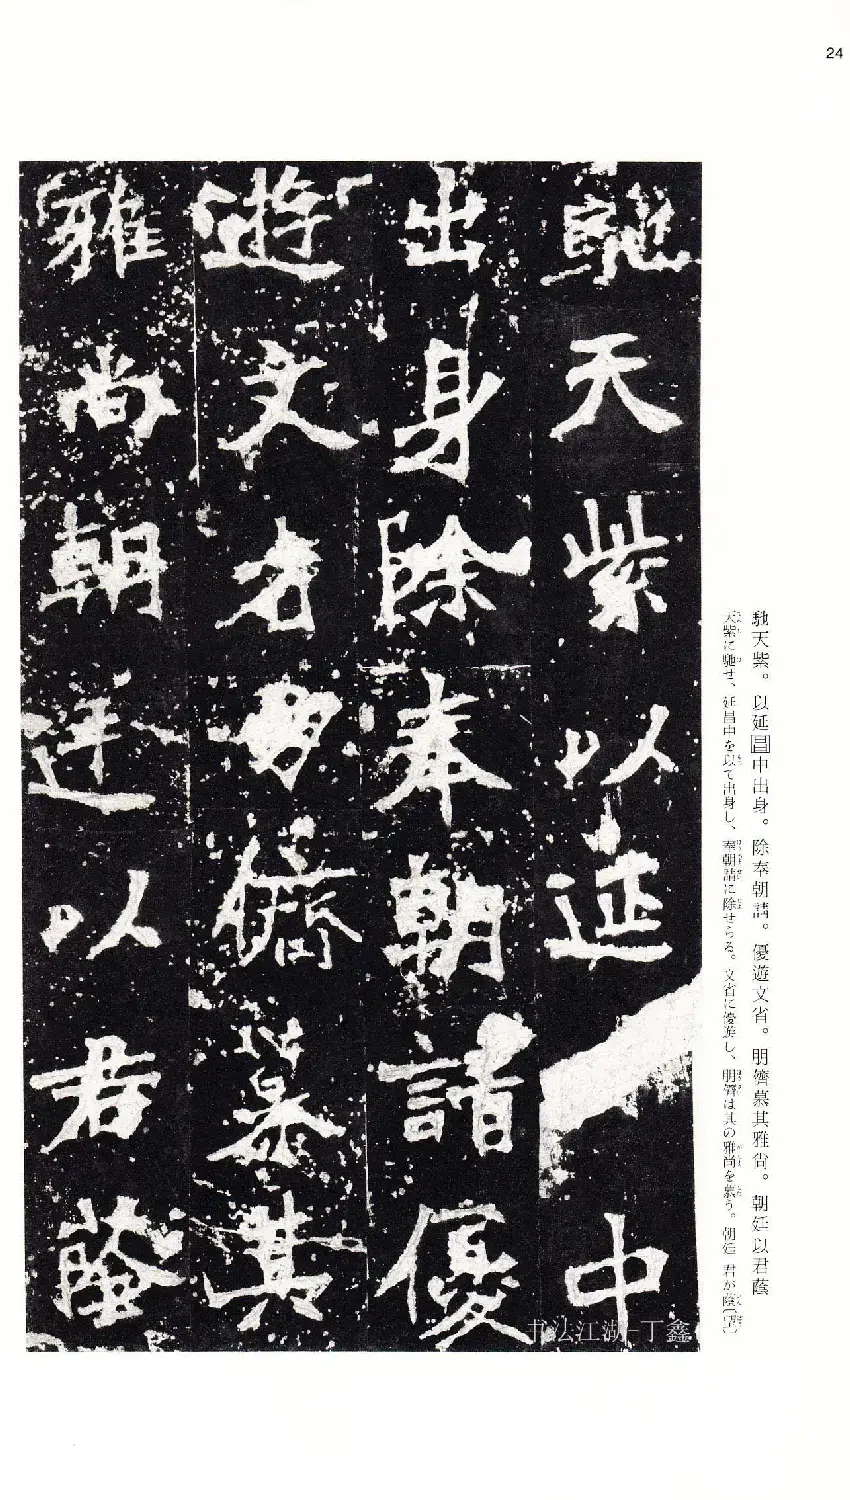 24
馳天紫以延中
出身除奉朝請優
遊文省朋儕慕其
雅尚朝廷以君蔭
馳天紫。以延昌中出身。除奉朝請。優遊文省。朋儕慕其雅尙。朝廷以君蔭
天紫に馳せ、延昌中を以て出身し、奉朝請に除せらる。文省に優遊し、朋儕は其の雅尚を慕う。朝廷 君が蔭
书法江湖-丁鑫